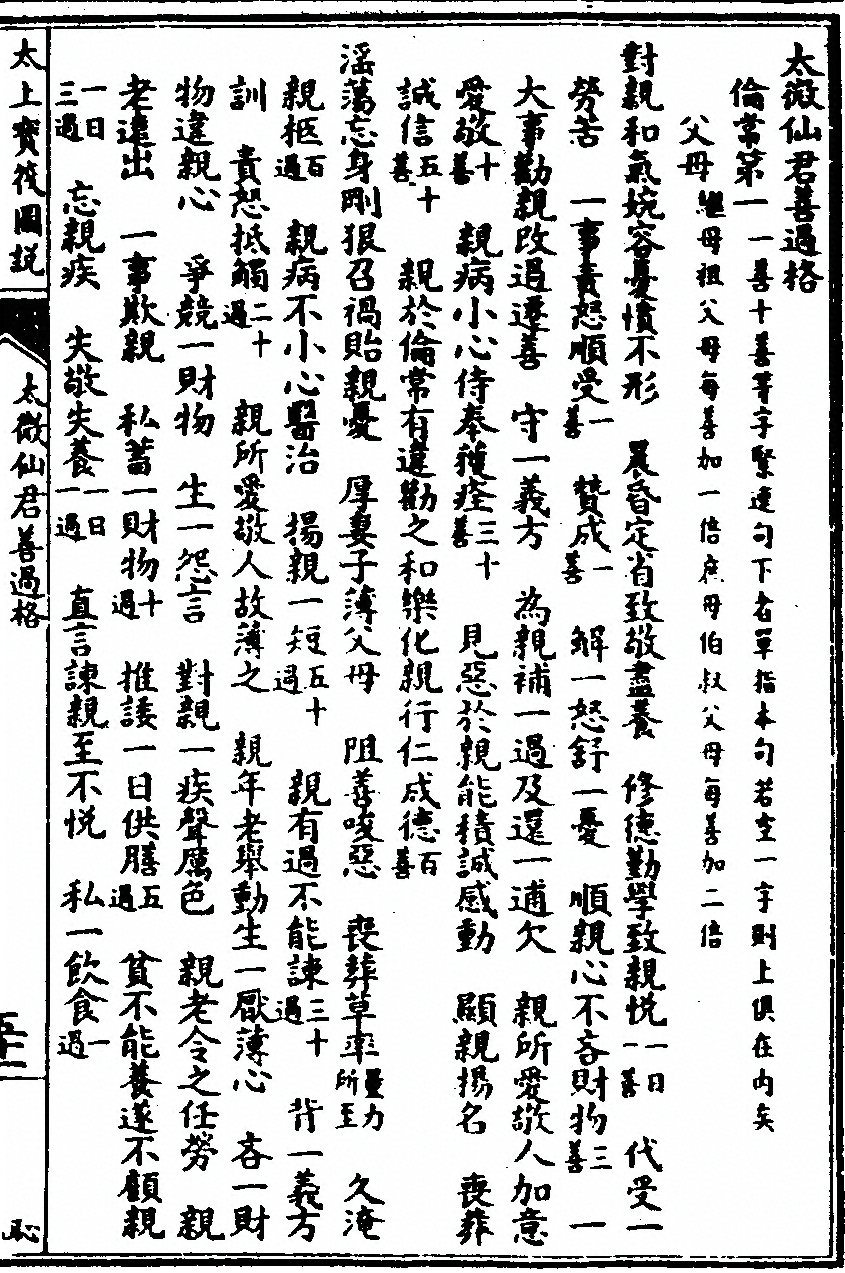 太微仙君善過格
倫常第一 一善十善等字緊連句下者單指本句若空一字則上俱在內矣
父母 繼母祖父母每善加一倍庶母伯叔父母每善加二倍
對親和氣婉容憂憤不形 晨昏定省致敬盡養 修德勤學致親悅一日一善 代受一
勞苦 一事責怒順受一善 贊成一善 解一怒舒一憂 順親心不吝財物三善 一
大事勸親改過遷善 守一義方 為親補一過及還一逋欠 親所愛敬人加意
愛敬十善 親病小心侍奉獲痊三十善 見惡於親能積誠感動 顯親揚名 喪葬
誠信五十善 親於倫常有違勸之和樂化親行仁成德百善
淫蕩忘身剛狠召禍貽親憂 厚妻子薄父母 阻善唆惡 喪葬草率量力所至 久淹
親柩百過 親病不小心醫治 揚親一短五十過 親有過不能諫三十過 背一義方
訓 責怒抵觸二十過 親所愛敬人故薄之 親年老舉動生一厭薄心 吝一財
物違親心 爭競一財物 生一怨言 對親一疾聲厲色 親老令之任勞 親
老遠出 一事欺親 私蓄一財物十過 推諉一日供膳五過 貧不能養遂不顧親
一日三過 忘親疾 失敬失養一日一過 直言諫親至不悅 私一飲食一過
太上寶筏圖說
太微仙君善過格
五十二
恥